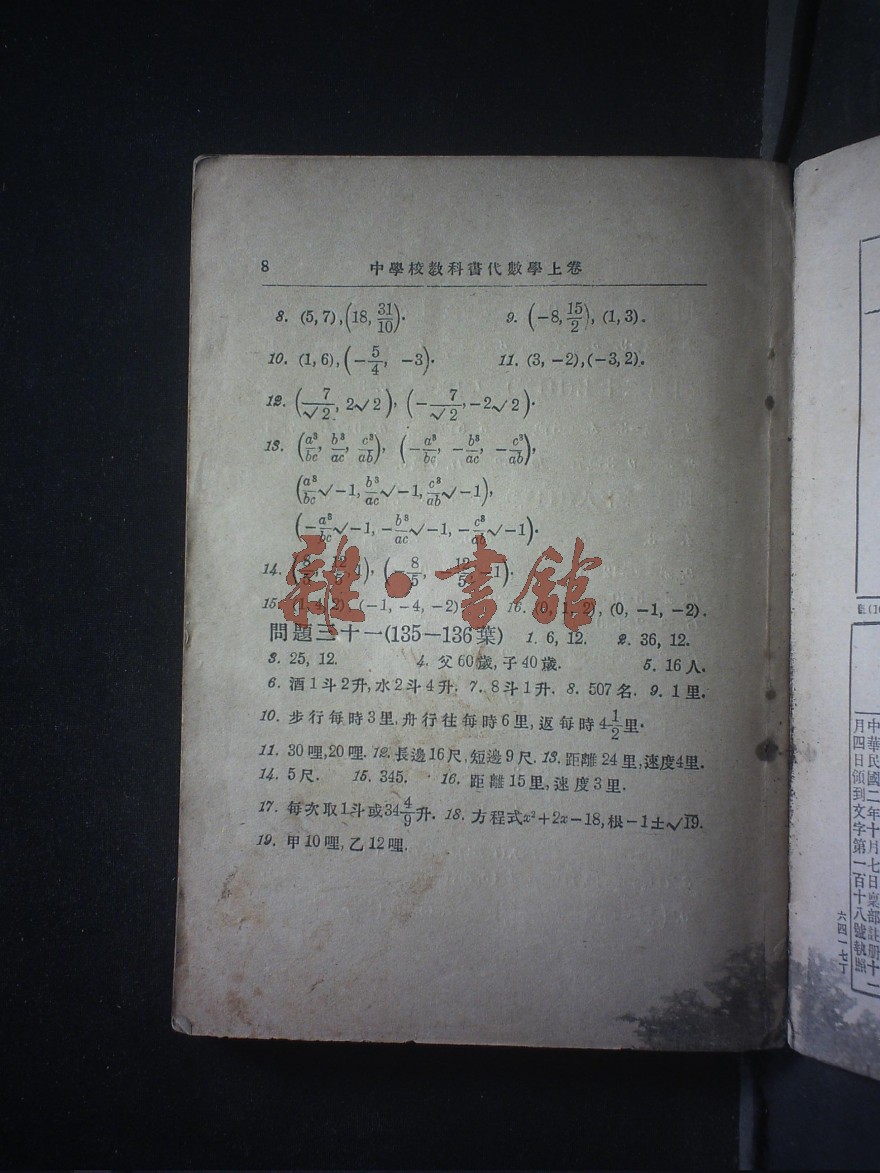 8 中學校教科書代數學上卷
8. (5, 7), (18, 31/10). 9. (−8, 15/2), (1, 3).
10. (1, 6), (−5/4, −3). 11. (3, −2), (−3, 2).
12. (7/√2, 2√2), (−7/√2, −2√2).
13. (a³/bc, b³/ac, c³/ab), (−a³/bc, −b³/ac, −c³/ab),
(a³/bc √−1, b³/ac √−1, c³/ab √−1),
(−a³/bc √−1, −b³/ac √−1, −c³/ab √−1).
14. (8/5, 12/5, 1), (−8/5, −12/5, −1).
15. (1, 4, 2), (−1, −4, −2). 16. (0, 1, 2), (0, −1, −2).
雜·書館
問題三十一(135—136葉) 1. 6, 12. 2. 36, 12.
3. 25, 12. 4. 父60歲, 子40歲. 5. 16人.
6. 酒1斗2升, 水2斗4升. 7. 8斗1升. 8. 507名. 9. 1里.
10. 步行每時3里, 舟行往每時6里, 返每時4 1/2里.
11. 30哩, 20哩. 12. 長邊16尺, 短邊9尺. 13. 距離24里, 速度4里.
14. 5尺. 15. 345. 16. 距離15里, 速度3里.
17. 每次取1斗或34 4/9升. 18. 方程式x²+2x−18, 根−1±√19.
19. 甲10哩, 乙12哩.
中華民國二年十月七日稟部註册十一
月四日領到文字第一百十八號執照
六四一七丁